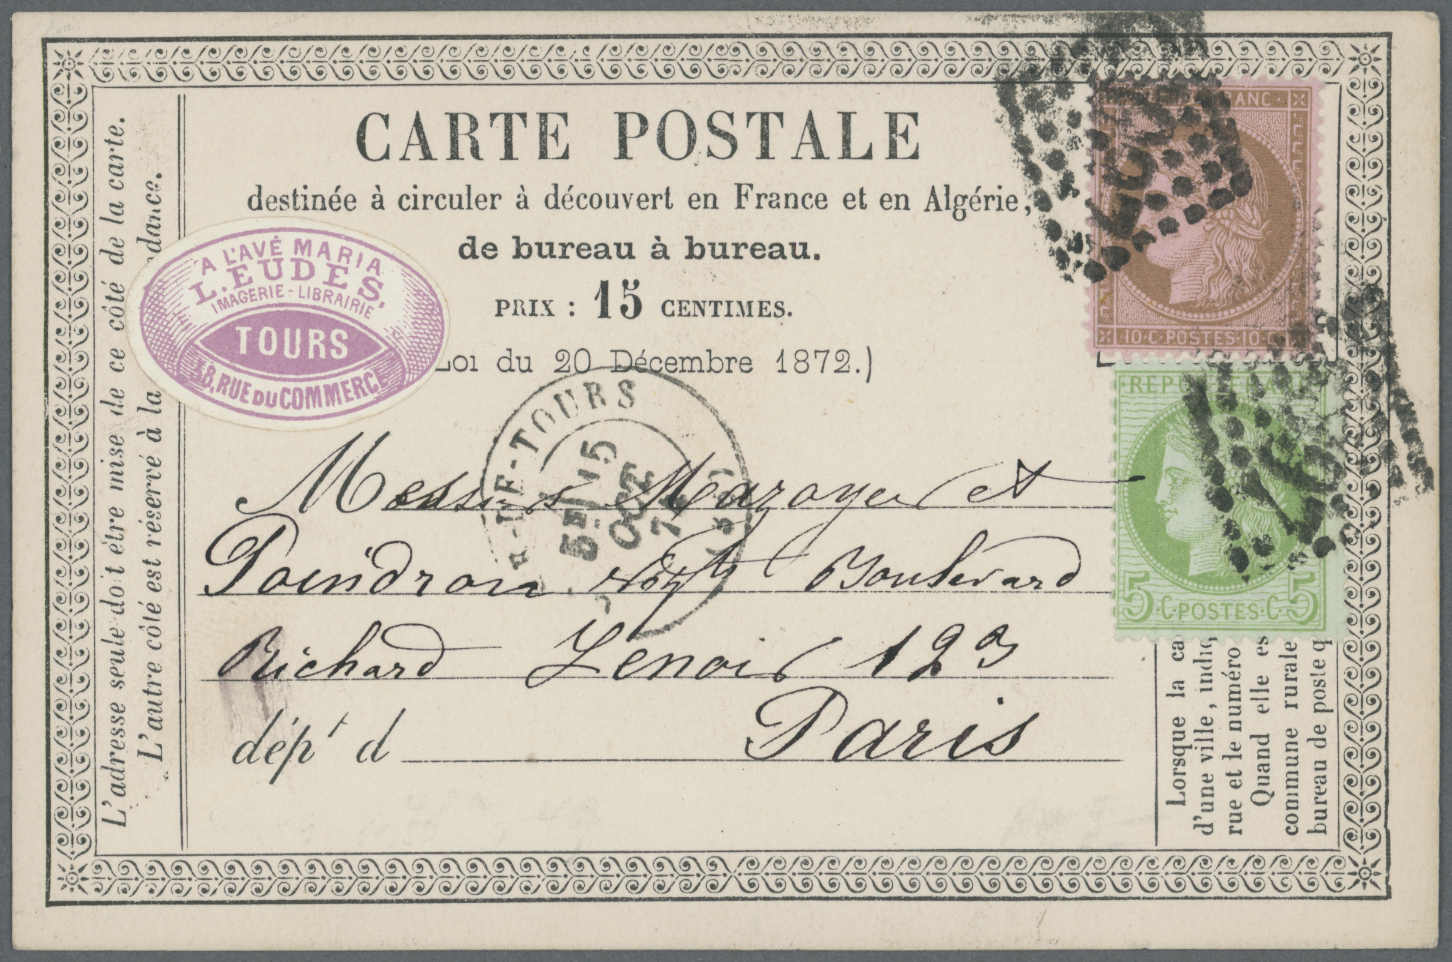 CARTE POSTALE
destinée à circuler à découvert en France et en Algérie,
de bureau à bureau.
PRIX : 15 CENTIMES.
Loi du 20 Décembre 1872.)
A L'AVÉ MARIA
L. EUDES,
IMAGERIE - LIBRAIRIE
TOURS
38, RUE DU COMMERCE
L'adresse seule doit être mise de ce côté de la carte.
L'autre côté est réservé à la dance.
TOURS
5E 15
OCT
74
Messieurs Mazoyer et
Poindron Boulevard
Richard Lenoir 123
dépt d Paris
FRANC
10 · C · POSTES · 10 · C
REPUB FRANC
5 · C · POSTES · C · 5
Lorsque la ca
d'une ville, indiq
rue et le numéro
Quand elle es
commune rurale
bureau de poste q